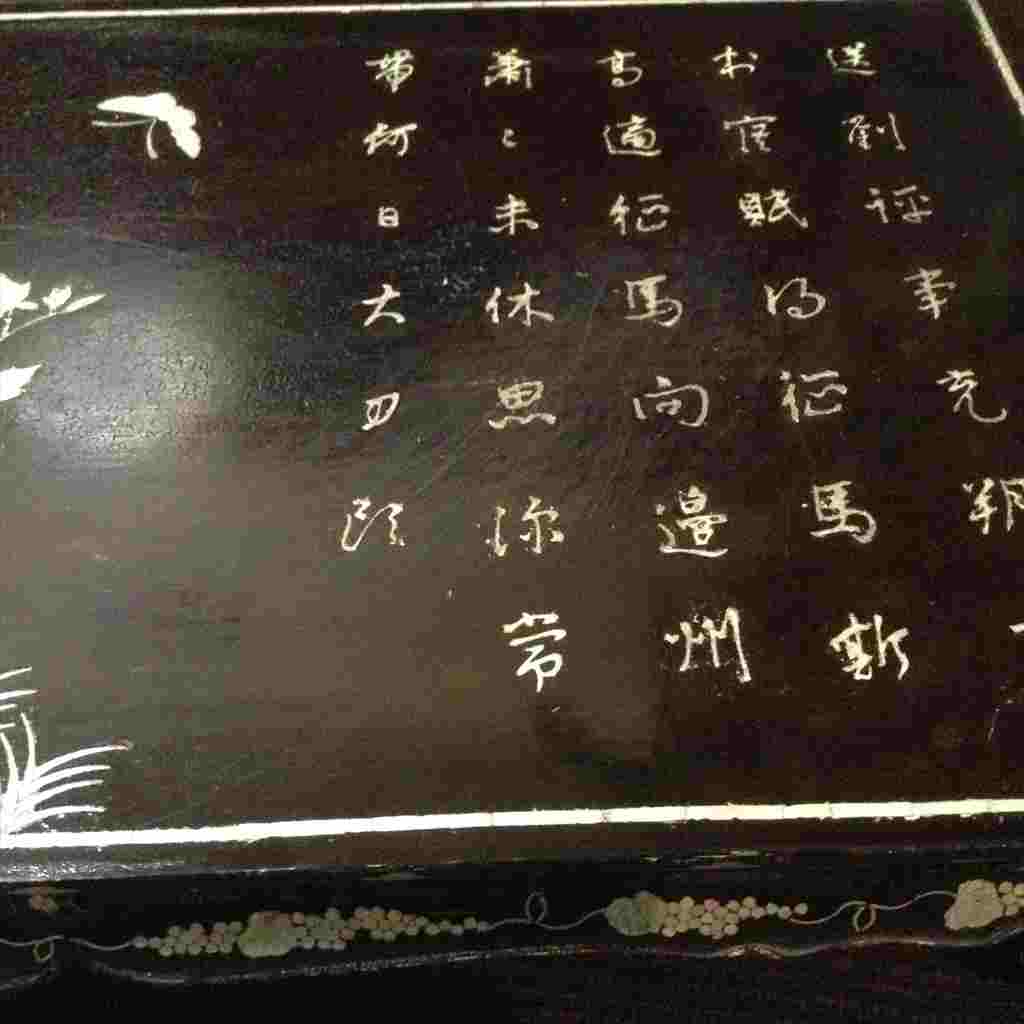 送劉評事充朔
判官賦得征馬嘶
高適征馬向邊州
蕭〻未休思深常
帶何日大刀頭